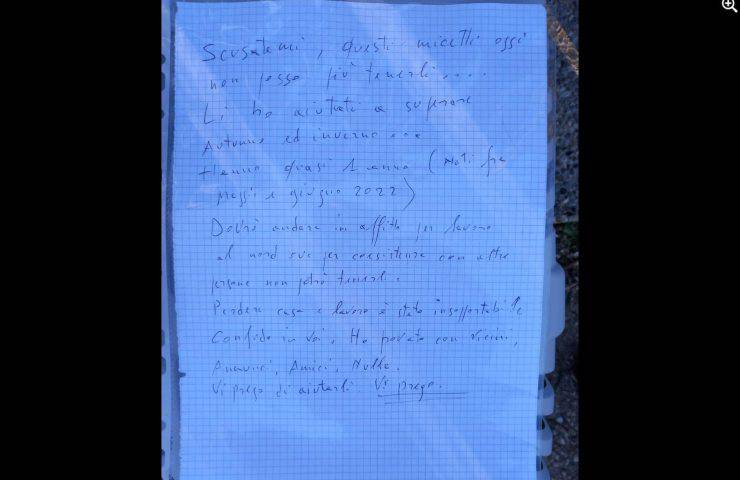 Scusatemi, questi micetti oggi
non posso più tenerli....
Li ho aiutati a superare
Autunno ed inverno...
Hanno quasi 1 anno (Nati fra
Maggio e giugno 2022)
Dovrò andare in affitto per lavoro
al nord ove per coesistenza con altre
persone non potrò tenerli.
Perdere casa e lavoro è stato insopportabile
Confido in voi, Ho provato con vicini,
Annunci, Amici, Nulla.
Vi prego di aiutarli. Vi prego.